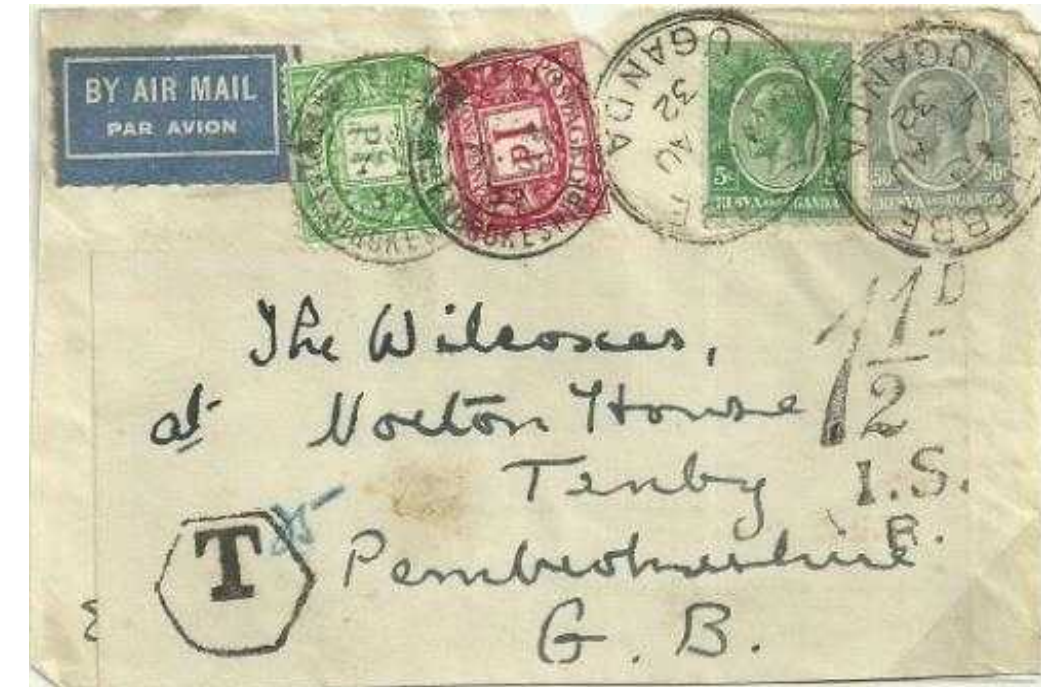 BY AIR MAIL
PAR AVION
1D
POSTAGE
UGANDA
32
5c
KENYA AND UGANDA
UGANDA
32
50c
KENYA AND UGANDA
PEMBROKESHIRE
1½D.
I.S.
R.
The Wilcoxes,
at Norton House
Tenby
Pembrokeshire
G. B.
T